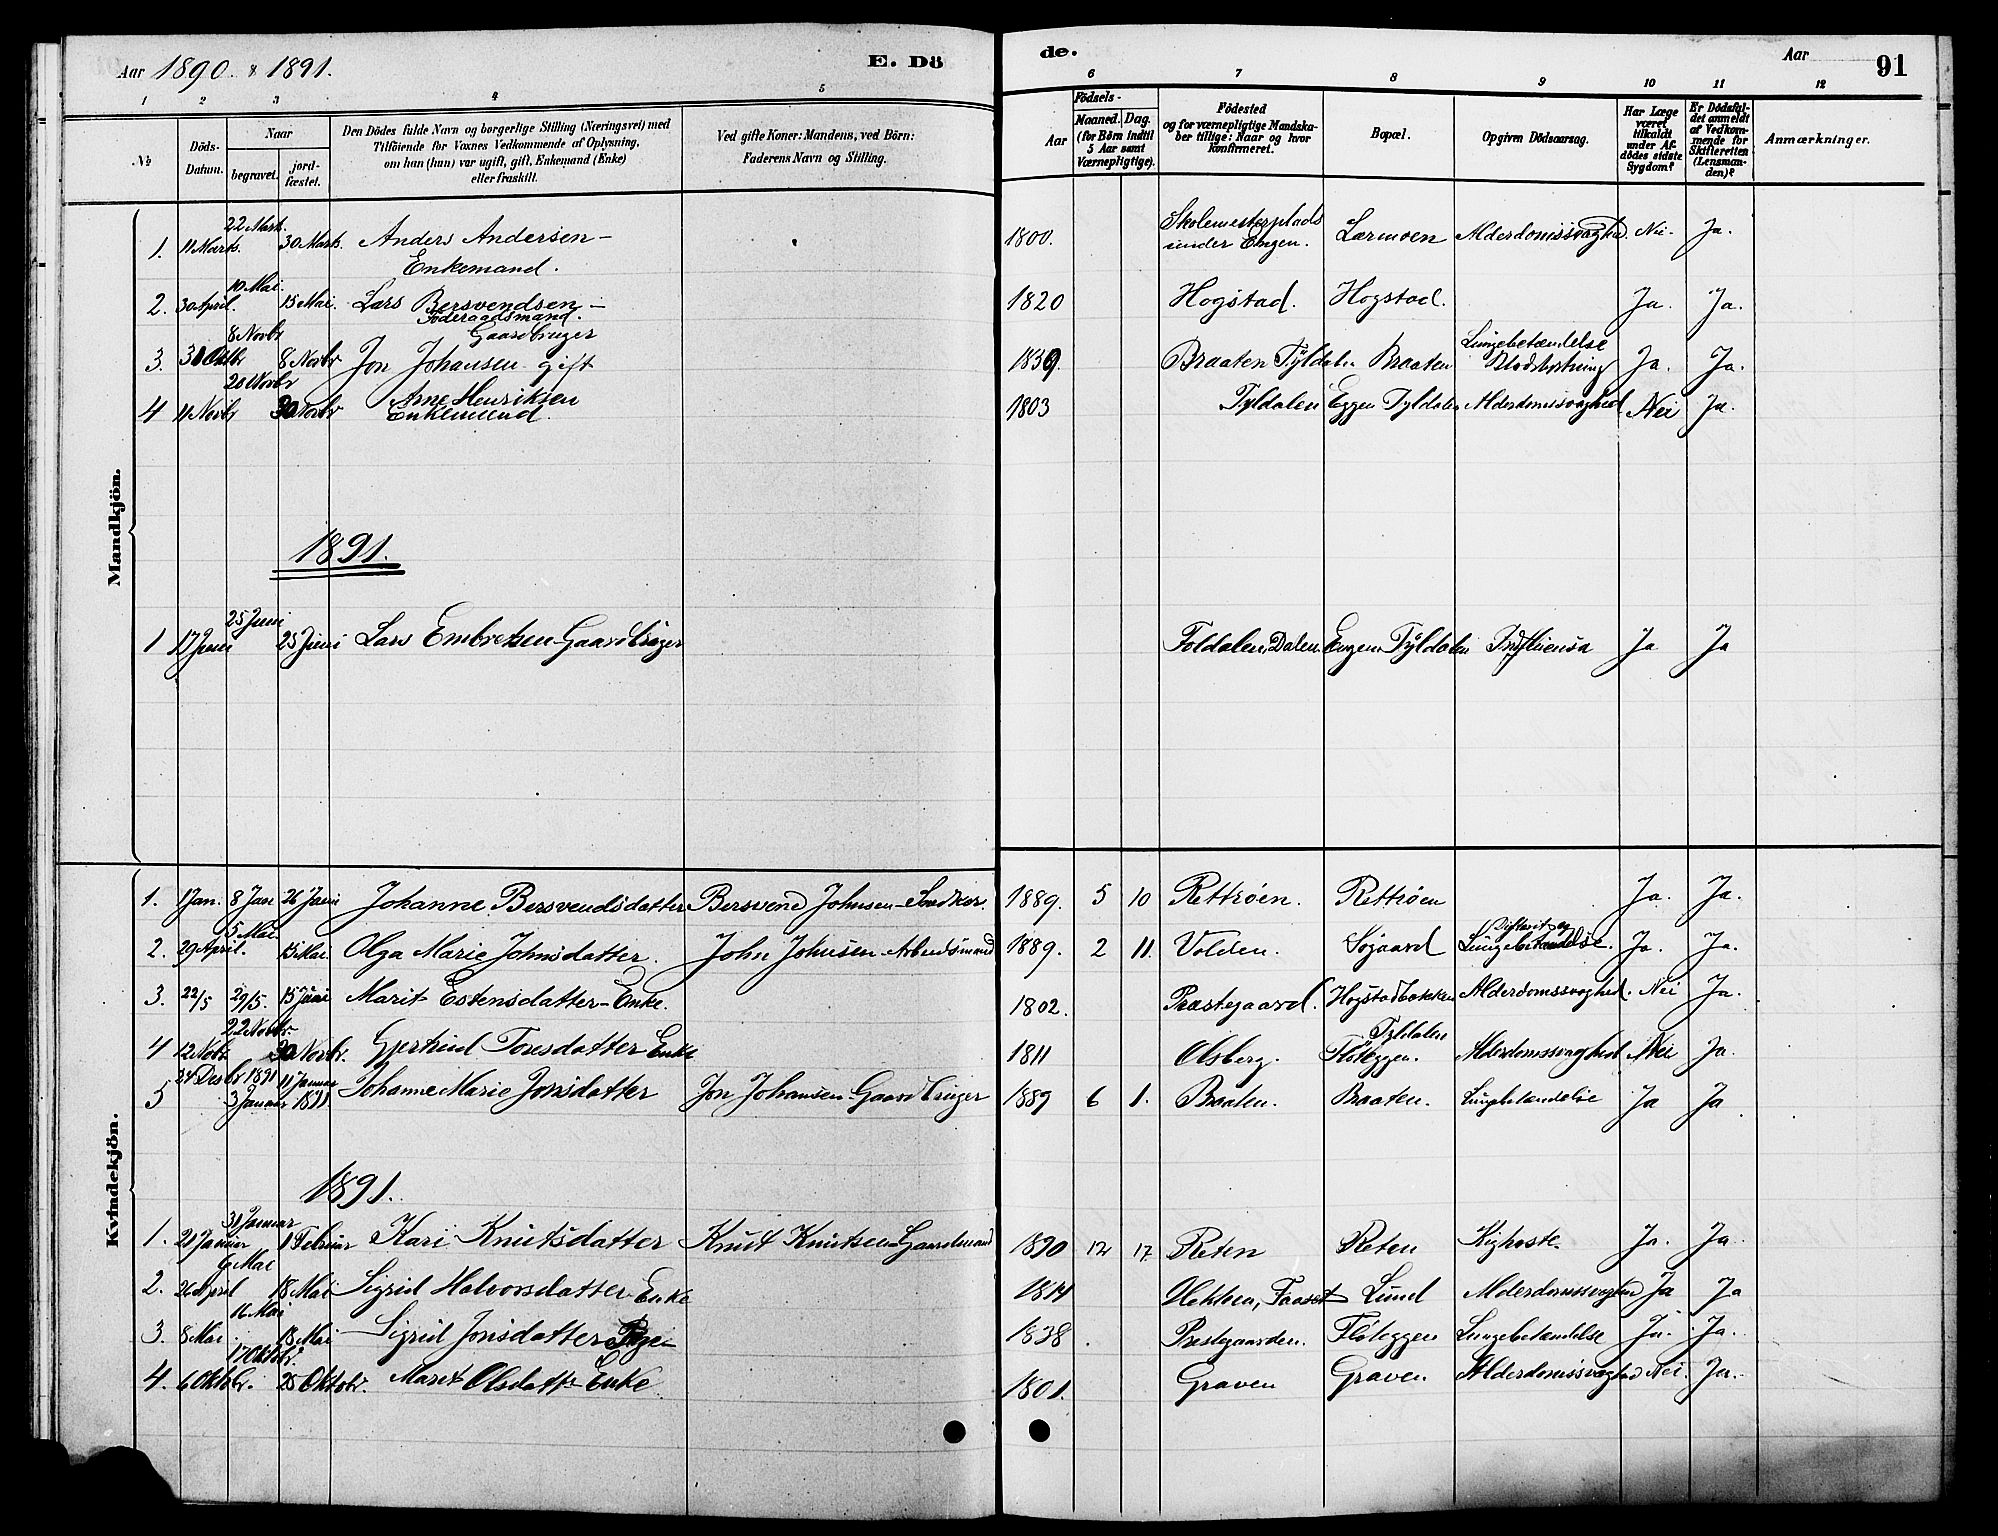 Aar 1890 & 1891.
E. Dö
de.
Aar
91
1 2 3 4 5 6 7 8 9 10 11 12
№
Döds-Datum.
Naar
begravet.
jord-fæstet.
Den Dödes fulde Navn og borgerlige Stilling (Næringsvei) med
Tilföiende for Voxnes Vedkommende af Oplysning,
om han (hun) var ugift, gift, Enkemand (Enke)
eller fraskilt.
Ved gifte Koner: Mandens, ved Börn:
Faderens Navn og Stilling.
Födsels-
Aar
Maaned.
Dag.
(for Börn indtil
5 Aar samt
Værnepligtige).
Födested
og for værnepligtige Mandska-
ber tillige: Naar og hvor
konfirmeret.
Bopæl.
Opgiven Dödsaarsag.
Har Læge
været
tilkaldt
under Af-
dödes sidste
Sygdom?
Er Dödsfal-
det anmeldt
af Vedkom-
mende for
Skifteretten
(Lensman-
den)?
Anmærkninger.
Mandkjön.
1. 11 Marts. 22 Mark. 30 Mark. Anders Andersen – Enkemand. 1800. Skolemesterplads under Engen. Lærmoen Alderdomssvaghed. Nei. Ja.
2. 30 April. 10 Mai. 15 Mai. Lars Bersvendsen – Föderaadsmand. 1820 Hogstad. Hogstad. Ja. Ja.
3. 31 Oktbr 8 Novbr 8 Novbr Jon Johansen gift Gaardbruger 1839. Braaten Tyldalen Braaten Lungebetændelse Blodstyrtning Ja. Ja.
4 11 Novbr 20 Novbr 30 Novbr Arne Henriksen Enkemand. 1803 Tyldalen Eggen Tyldalen Alderdomssvaghed Nei Ja.
1891.
1 17 Juni 25 Juni 25 Juni Lars Embretsen Gaardbruger Foldalen, Dalen Engen Tyldalen Influensa Ja Ja
Kvindekjön.
1. 1 Jan. 8 Jan 26 Janr Johanne Bersvendsdatter Bersvend Johnsen – 1889. 5 10 Rettrøen. Rettrøen Ja. Ja.
2. 29 April. 5 Mai. 15 Mai. Olga Marie Johnsdatter. John Johnsen Arbeidsmand 1889. 2 11. Volden. Søgaard Difterit og Lungebetændelse. Ja. Ja.
3. 22/5 29/5. 15 Juni Marit Estensdatter – Enke. 1802. Præstegaard. Hogstadbakken Alderdomssvaghed. Nei Ja.
4 12 Nobr 22 Novbr. 30 Novbr. Gjertrud Toresdatter Enke 1811 Olsberg. Fløteggen. Tyldalen Alderdomssvaghed Nei Ja.
5 24 Desbr 3 Januar 1891 11 Januar 1891. Johanne Marie Jonsdatter Jon Johansen Gaardbruger 1889 6 1. Braaten. Braaten. Lungebetændelse Ja Ja
1891.
1. 21 Januar 31 Januar 1 Februar Kari Knutsdatter Knut Knutsen Gaardmand 1890 12 17. Reten Reten Kighoste. Ja. Ja.
2. 26 April 6 Mai 18 Mai Sigrid Halvorsdatter Enke 1814 Faaset Lund Alderdomssvaghed Ja Ja
3. 8 Mai 16 Mai 18 Mai Sigrid Jonsdatter Pige 1838 Præstegaarden. Fløteggen Lungebetændelse Ja. Ja.
4. 6 Oktbr. 17 Oktobr. 25 Oktobr. Marit Olsdatter Enke 1801. Graven Graven Alderdomssvaghed Nei. Ja.